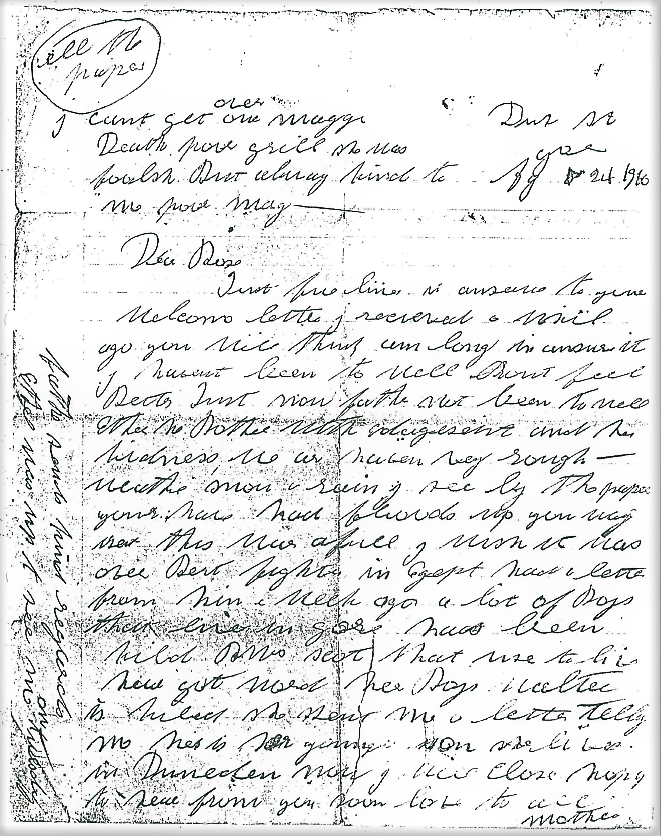 all the
paper
I cant get over one maggi
Death poor grill she was
foolsh But alway kind to
me poor mag
Dur st
gore
24 1916
Dear Rose
Just few lines in answer to your
Welcome letter I recieved a while
ago you will think am long in answer it
I havent been to well Dont feel
Better Just now father not been to well
Either he Bother with and his
kidness We are haven very rough
weather snow & rain I see by the paper
yours have had flouds up you way
this war afull I wish it was
over Bert fighte in Egept had a letter
from him a week ago a lot of Boys
that live in gore have been
kild Mrs scot that use to live
here got word her Boys walter
is kiled she shew me a letter telling
me he is her younge son she lives
in Duneden now I will close hoping
to hear from you soon love to all
mother
father sends kind regards
Ethel was up to see me on Friday